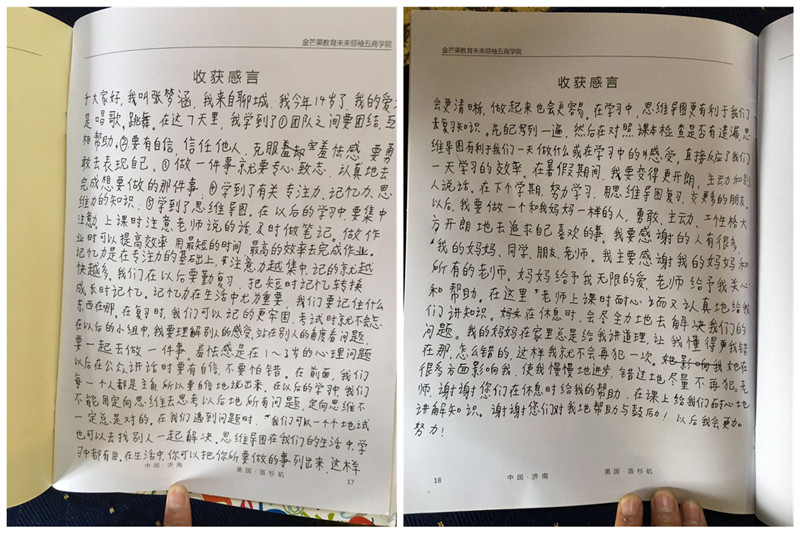 金芒果教育未来领袖五商学院
收获感言
大家好,我叫张梦涵,我来自聊城,我今年14岁了,我的爱
是唱歌,跳舞。在这7天里,我学到了①团队之间要团结,互
相帮助。②要有自信,信任他人,克服羞却害羞怯感,要勇
敢去表现自己。③做一件事就要专心致志,认真地去
完成想要做的那件事,④学到了有关专注力、记忆力、思
维力的知识,⑤学到了思维导图。在以后的学习中,要集中
注意力上课时注意老师说的话,及时做笔记。做作
业时可以提高效率,用最短的时间,最高的效率去完成作业。
记忆力是在专注力的基础上,注意力越集中,记的就越
快越多。我们在以后要勤复习,把短时记忆转换
成长时记忆。记忆力在生活中尤为重要,我们要记住什么
东西在哪,在复习时,我们可以记的更牢固,考试时就不能忘
在以后的小组中,我要理解别人的感受,站在别人的角度看问题,
要一起去做一件事。羞怯感是在1~3岁的心理问题
以后在公众讲话时要有自信,不要怕错。在前面,我们
每一个人都是主角所以要自信地说出来,在以后的学习中,我们
不能用定向思维去思考以后地所有问题,定向思维不
一定总是对的。在我们遇到问题时,我们可以一个个地试
也可以去找别人一起解决。思维导图在我们的生活中,学
习中都有用。在生活中,你可以把你所要做的事列出来,这样
中国·济南 美国·洛杉矶 17
金芒果教育未来领袖五商学院
收获感言
会更清晰,做起来也会更容易。在学习中,思维导图更有利于我们
去复习知识。先自己写到一遍,然后在对照课本检查是否有遗漏,思
维导图有利于我们一天做什么或在学习中的感受,直接反应了我们
一天学习的效率。在暑假期间,我要变得更开朗,主动和别
人说话。在下个学期,努力学习,用思维导图复习,交更多的朋友。
以后,我要做一个和我妈妈一样的人,勇敢、主动、性格大
方开朗地去追求自己喜欢的事。我要感谢的人有很多。
我的妈妈、同学、朋友、老师。我主要感谢我的妈妈和
所有的老师。妈妈给予我无限的爱,老师给予我关心
和帮助。在这里老师上课时耐心而又认真地给我
们讲知识。在休息时,会尽全力地去解决我们的
问题。我的妈妈在家里总是给我讲道理,让我懂得更我错
在那,怎么错的,这样我就不会再犯一次。她影响我她在
很多方面影响我,使我慢慢地进步,错过地尽量不再犯。老
师,谢谢您们在休息时给我的帮助,在课上给我们耐心地
讲解知识。谢谢您们对我地帮助与鼓励!以后我会更加
努力!
18 中国·济南 美国·洛杉矶